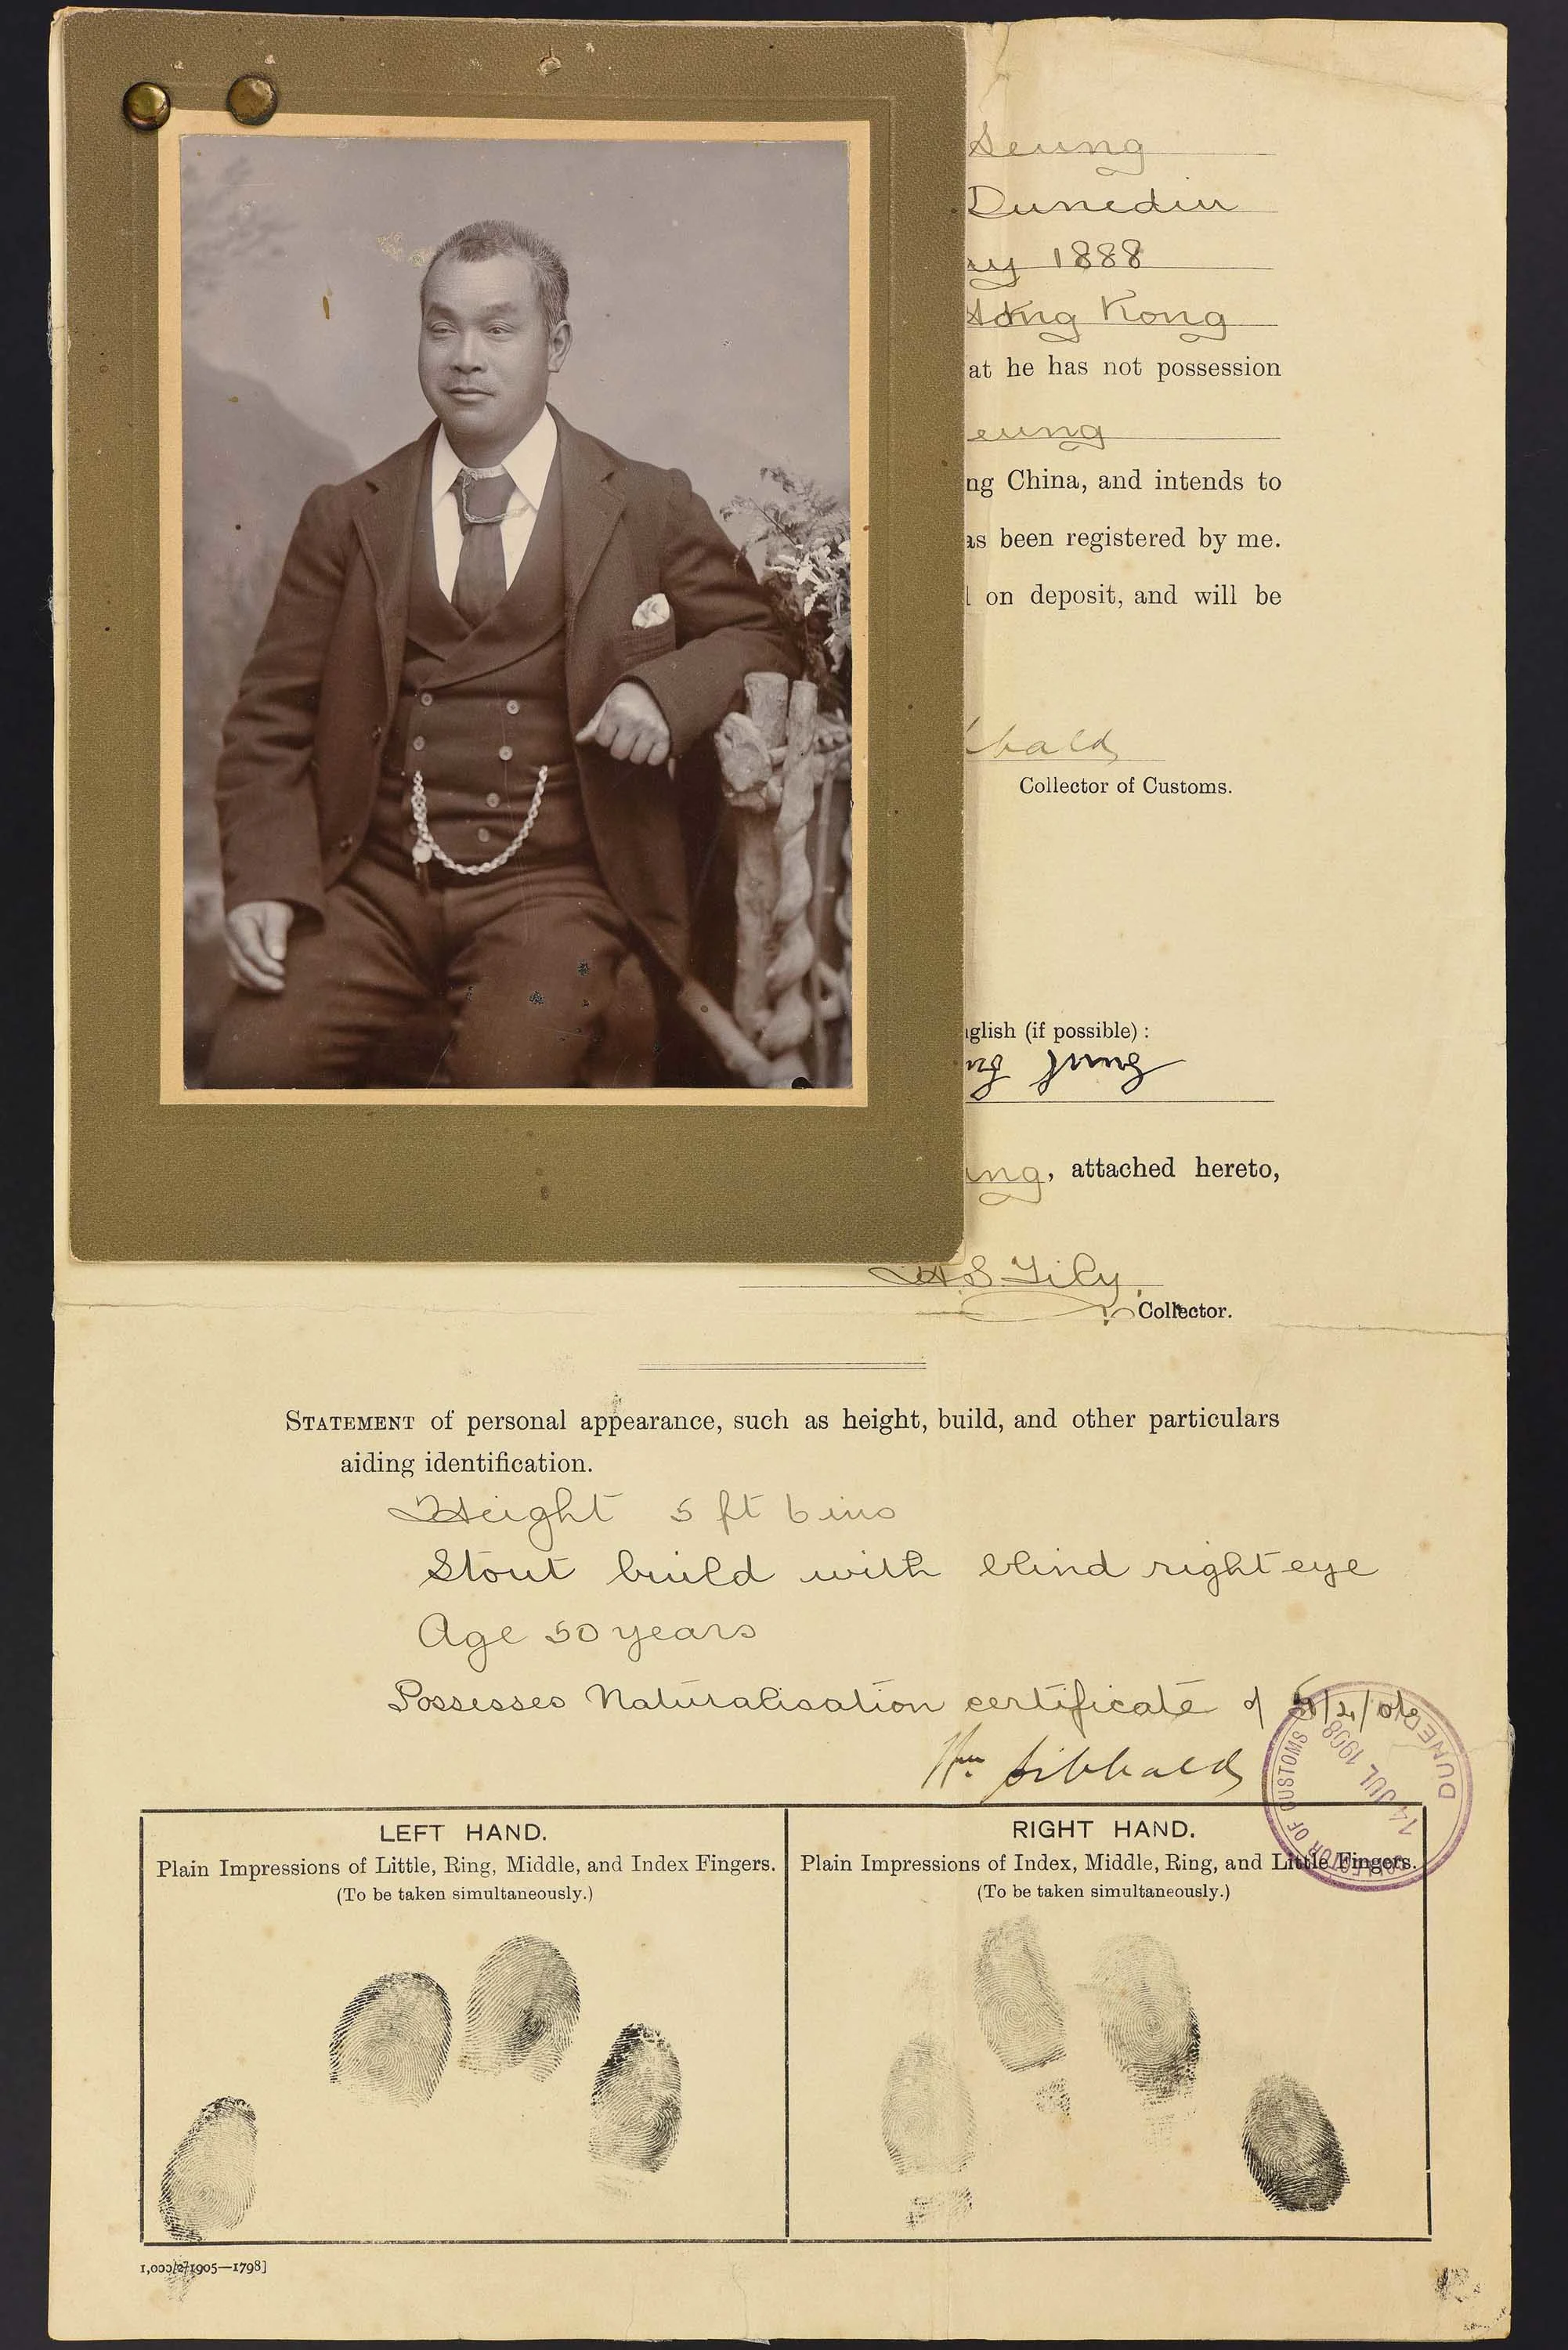 Seung
Dunedin
ay 1888
Hong Kong
at he has not possession
eung
ng China, and intends to
as been registered by me.
on deposit, and will be
bald
Collector of Customs.
glish (if possible) :
ung, attached hereto,
H S Tily
Collector.
STATEMENT of personal appearance, such as height, build, and other particulars
aiding identification.
Height 5 ft 6 ins
Stout build with blind right eye
Age 50 years
Possesses Naturalisation certificate of
Wm Sibbald
COLLECTOR OF CUSTOMS
14 JUL 1908
DUNEDIN
LEFT HAND.
Plain Impressions of Little, Ring, Middle, and Index Fingers.
(To be taken simultaneously.)
RIGHT HAND.
Plain Impressions of Index, Middle, Ring, and Little Fingers.
(To be taken simultaneously.)
1,000/2/1905—1798]